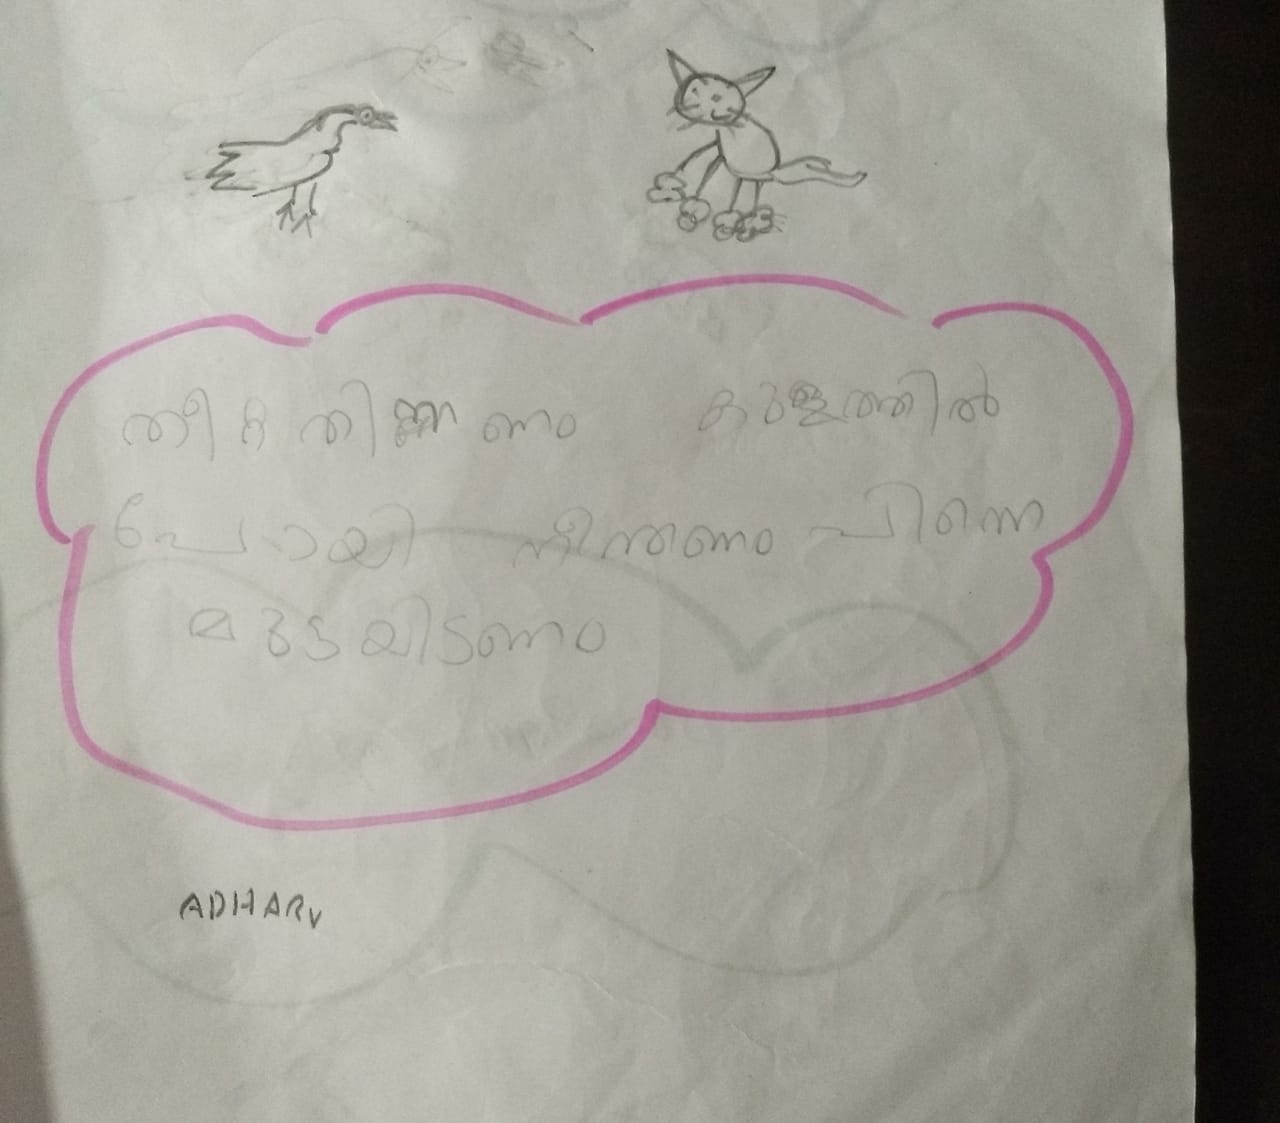 തീറ്റ തിന്നണം കുളത്തിൽ
പോയി നീന്തണം പിന്നെ
മുട്ടയിടണം
ADHARV